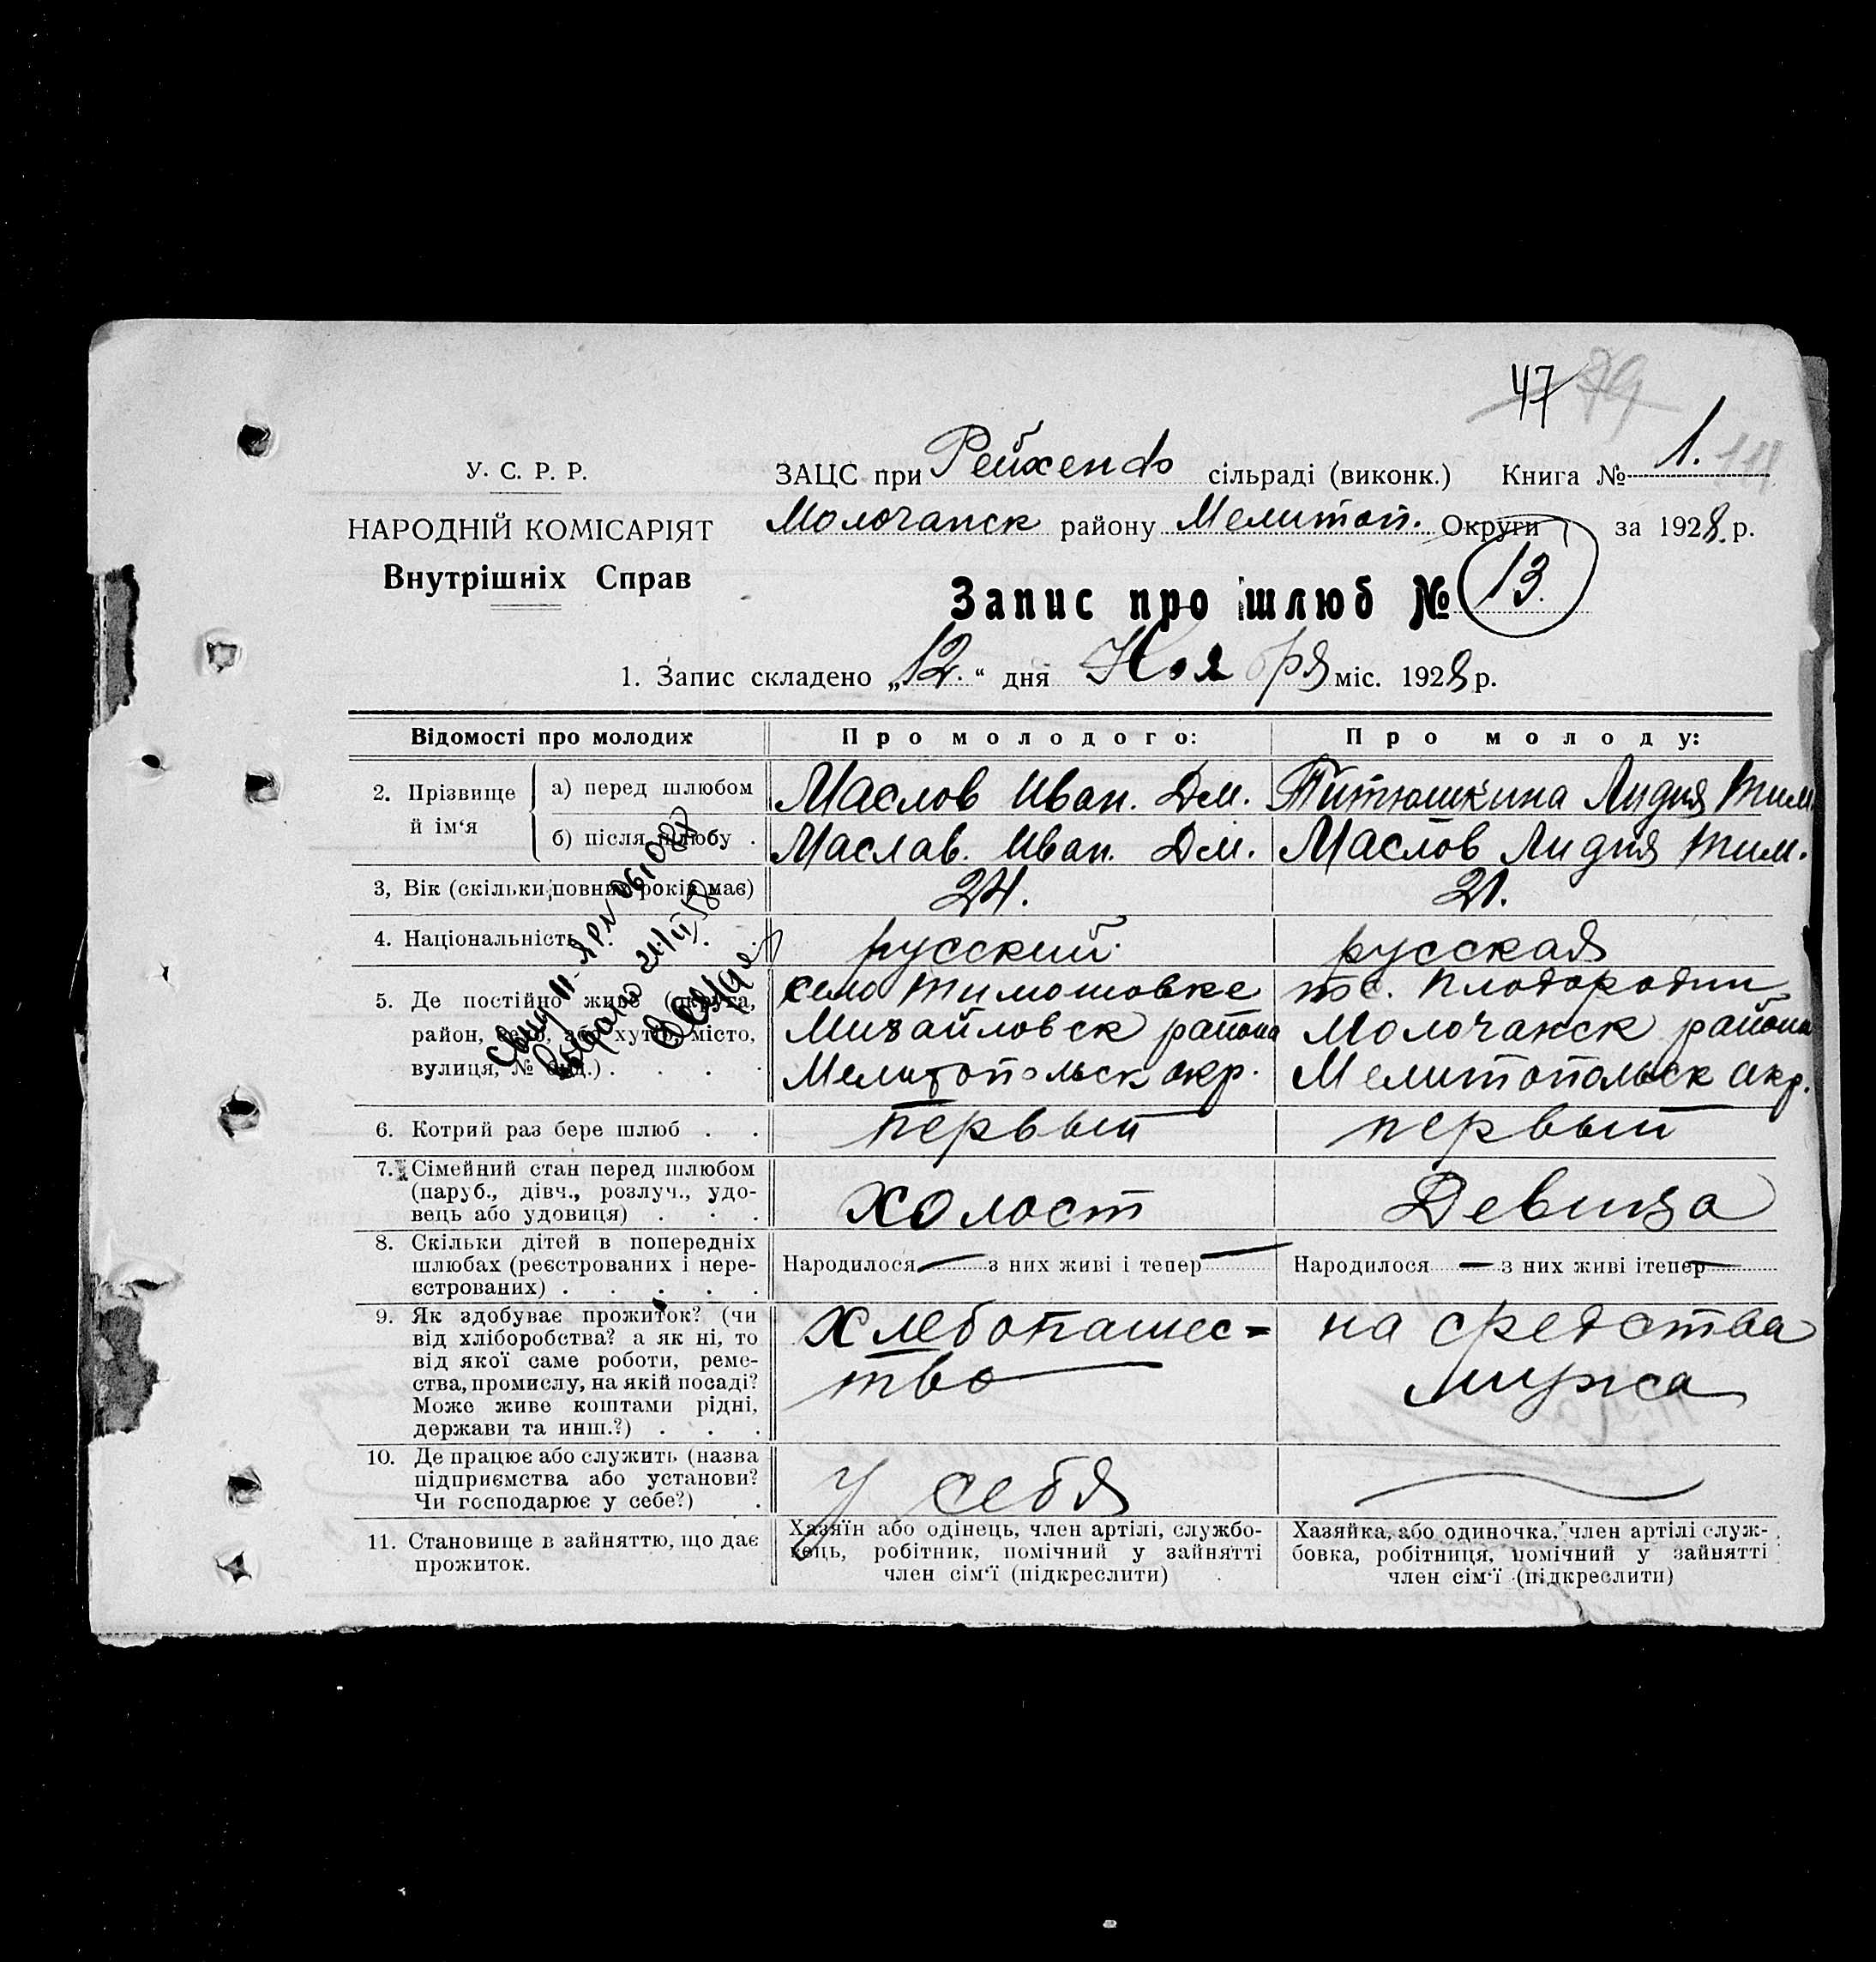 47 79
У. С. Р. Р.
ЗАЦС при Рейхенф сільраді (виконк.) Книга № 1.
НАРОДНІЙ КОМІСАРІЯТ
Молочанск району Мелитоп. Округи за 1928. р.
Внутрішніх Справ
Запис про шлюб № 13.
1. Запис складено „12.“ дня Ноября міс. 1928 р.
Відомості про молодих
Про молодого:
Про молоду:
2. Прізвище й ім‘я
а) перед шлюбом
Маслов Иван. Дм.
Титюшкина Лидия Тим.
б) після шлюбу .
Маслав. Иван. Дм.
Маслов Лидия Тим.
3, Вік (скільки повних років має)
24.
21.
4. Національність . . .
русский.
русская
5. Де постійно живе (округа,
район, село, або хутір, місто,
вулиця, № буд.) . . . .
село Тимошовке
Михайловск района
Мелитопольск окр.
с. Плодородии
Молочанск района
Мелитопольск окр.
6. Котрий раз бере шлюб . .
первый
первый
7. Сімейний стан перед шлюбом
(паруб., дівч., розлуч., удо-
вець або удовиця) . . .
холост
Девица
8. Скільки дітей в попередніх
шлюбах (реєстрованих і нере-
єстрованих) . . . . .
Народилося — з них живі і тепер —
Народилося — з них живі ітепер —
9. Як здобуває прожиток? (чи
від хліборобства? а як ні, то
від якої саме роботи, реме-
ства, промислу, на якій посаді?
Може живе коштами рідні,
держави та инш.?) . . .
Хлебопашес=
тво
на средства
мужа
10. Де працює або служить (назва
підприємства або установи?
Чи господарює у себе?) .
у себя
11. Становище в зайняттю, що дає
прожиток.
Хазяїн або одінець, член артілі, службо-
вець, робітник, помічний у зайнятті
член сім‘ї (підкреслити)
Хазяйка, або одиночка, член артілі служ-
бовка, робітниця, помічний у зайнятті
член сім‘ї (підкреслити)